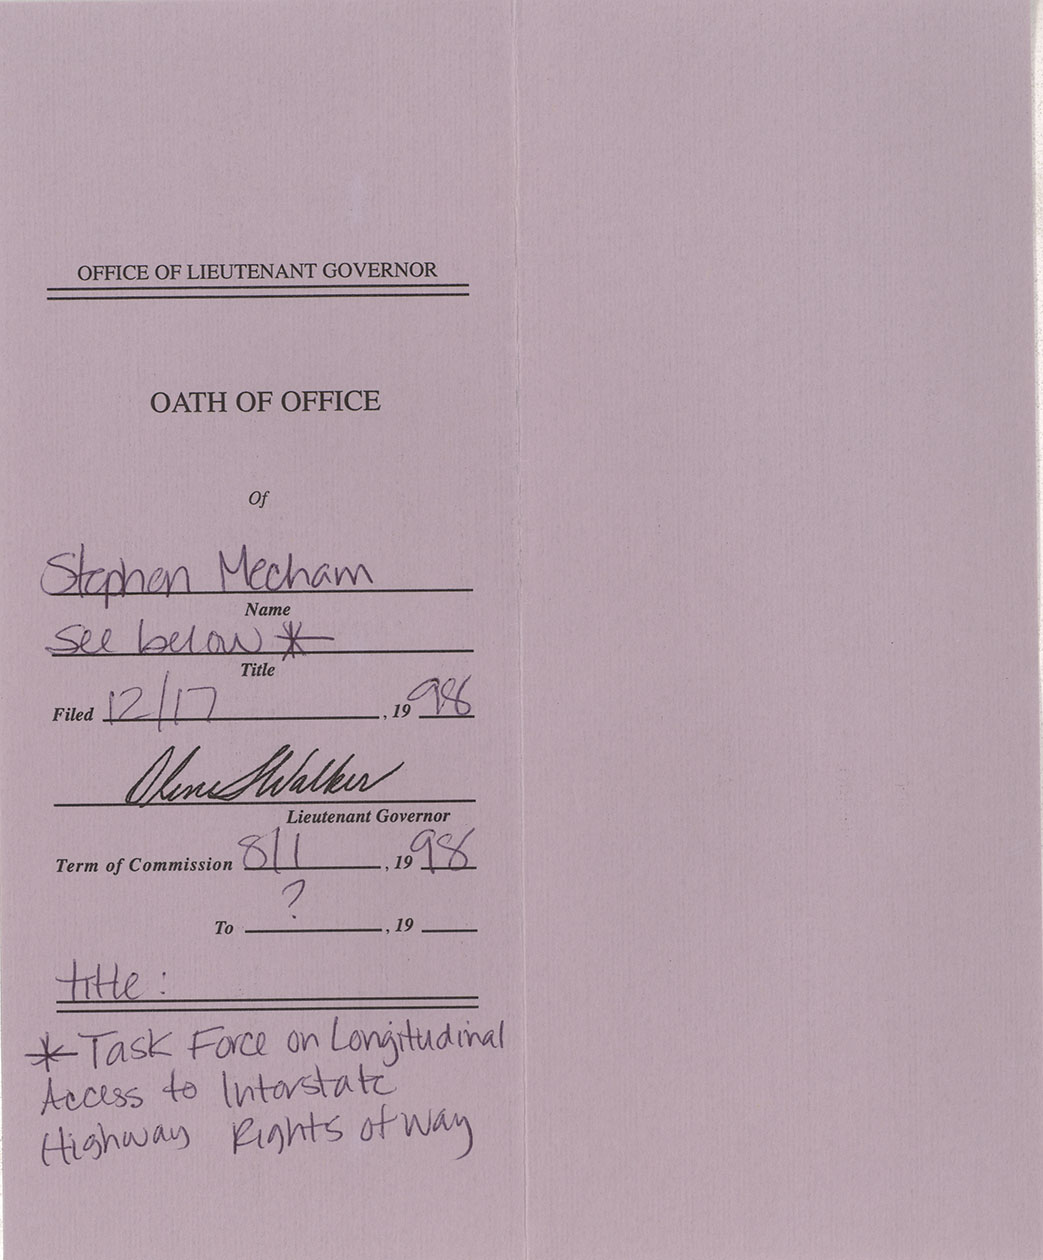 OFFICE OF LIEUTENANT GOVERNOR
OATH OF OFFICE
Of
Stephen Mecham
Name
See below *
Title
Filed 12/17, 1998
Olene S Walker
Lieutenant Governor
Term of Commission 8/1, 1998
?
To , 19
title:
* Task Force on Longitudinal
Access to Interstate
Highway Rights of Way